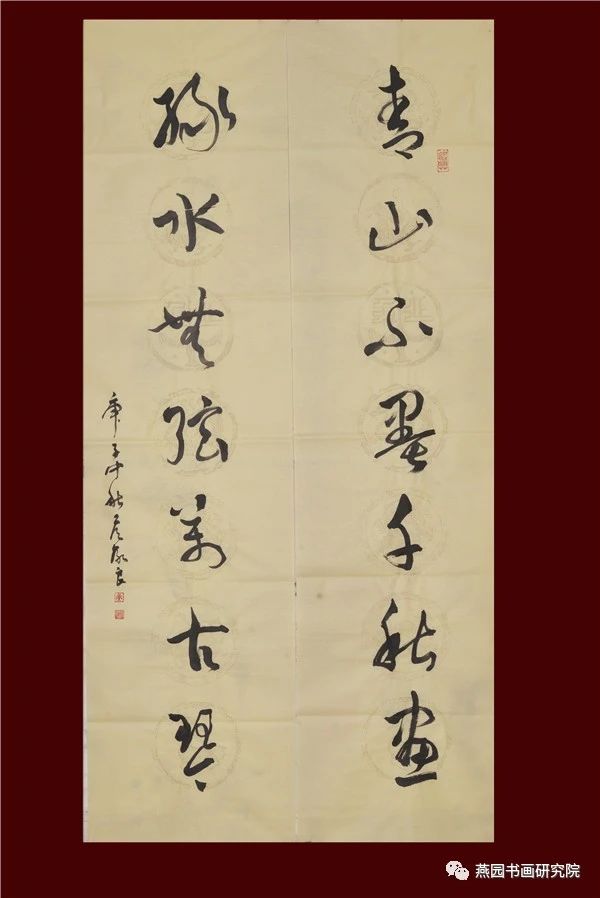 青山不墨千秋画
緑水無弦萬古琴
庚子仲秋
燕园书画研究院